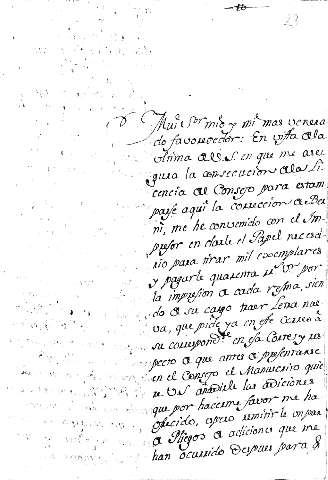 Mui Sor mio, y mi mas venera
do favorecedor: En vista de la
ultima de VS. en que me ase
gura la consecucion de la Li
cencia del Consejo para estam
parse aqui la coreccion de
me he convenido con el Im
presor en darle el Papel necesa
rio para tirar mil exemplares
y pagarle quarenta rs. vn. por
la impresion de cada resma, sien
do de su cargo traer Letra nue
va, que pide ya en este Correo a
su correspondte. en esa Corte; y res
pecto a que antes de presentarse
en el Consejo el Manuscrito quie
re VS. añadirle las adiciones
que por hacerme favor me ha
ofrecido, espero remitirle un par
de Pliegos de adiciones que me
han ocurrido despues para q